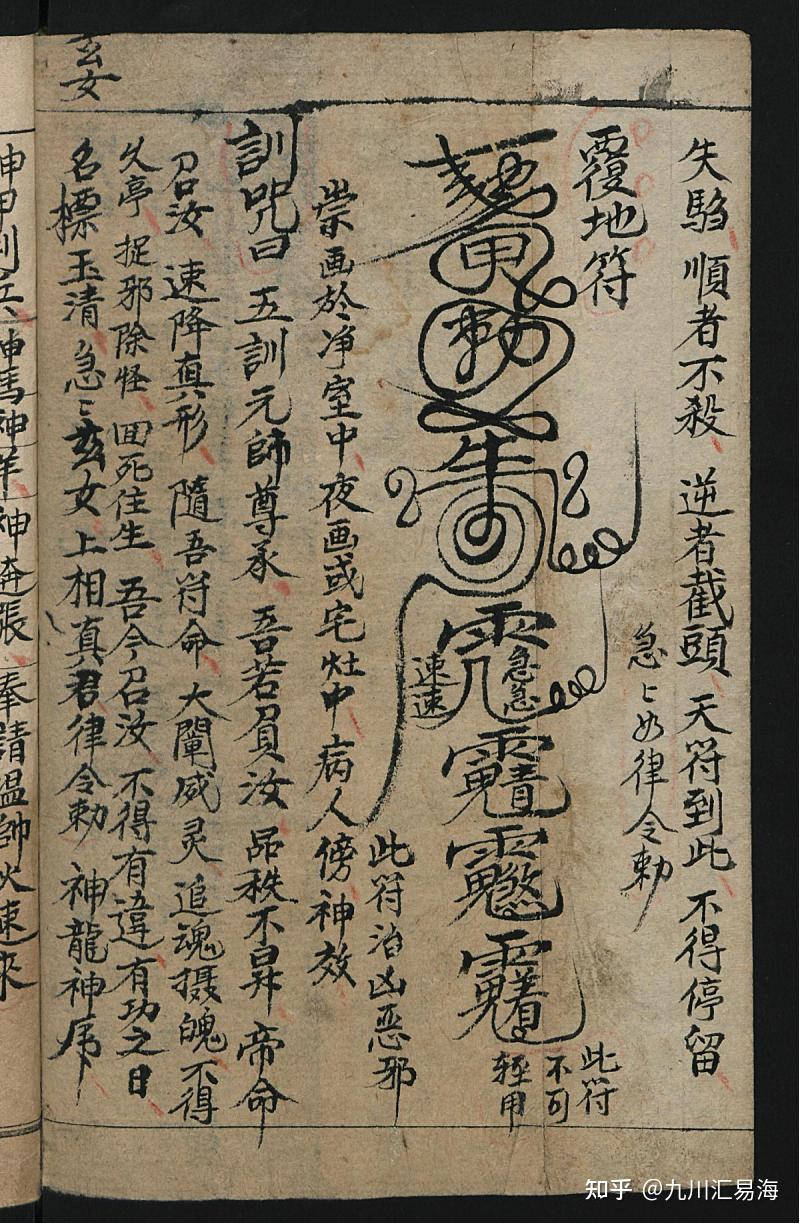 玄女
失驺 順者不殺 逆者截頭 天符到此 不得停留
急〻如律令勅
覆地符
勅
急急
速速
此符
不可
輕用
此符治凶惡邪
崇画於净室中夜画或宅灶中病人傍神效
訓咒曰 五訓元師尊承 吾若負汝 品秩不昇 帝命
召汝 速降真形 隨吾符命 大闡威灵 追魂摄魄 不得
久亭 捉邪除怪 回死住生 吾今召汝 不得有違 有功之日
名標玉清 急〻玄女上相真君律令勅 神龍神虎
神馬神羊神 奔張 奉請温帥火速來
知乎 @九川汇易海